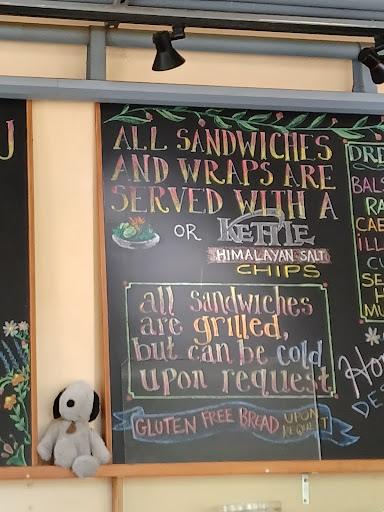 U
ALL SANDWICHES
AND WRAPS ARE
SERVED WITH A
OR KETTLE
HIMALAYAN SALT
CHIPS
all sandwiches
are grilled,
but can be cold
upon request
GLUTEN FREE BREAD UPON
REQUEST
DRE
BALS
RA
CAE
ILL
CU
SE
H
MU
Ho
DE